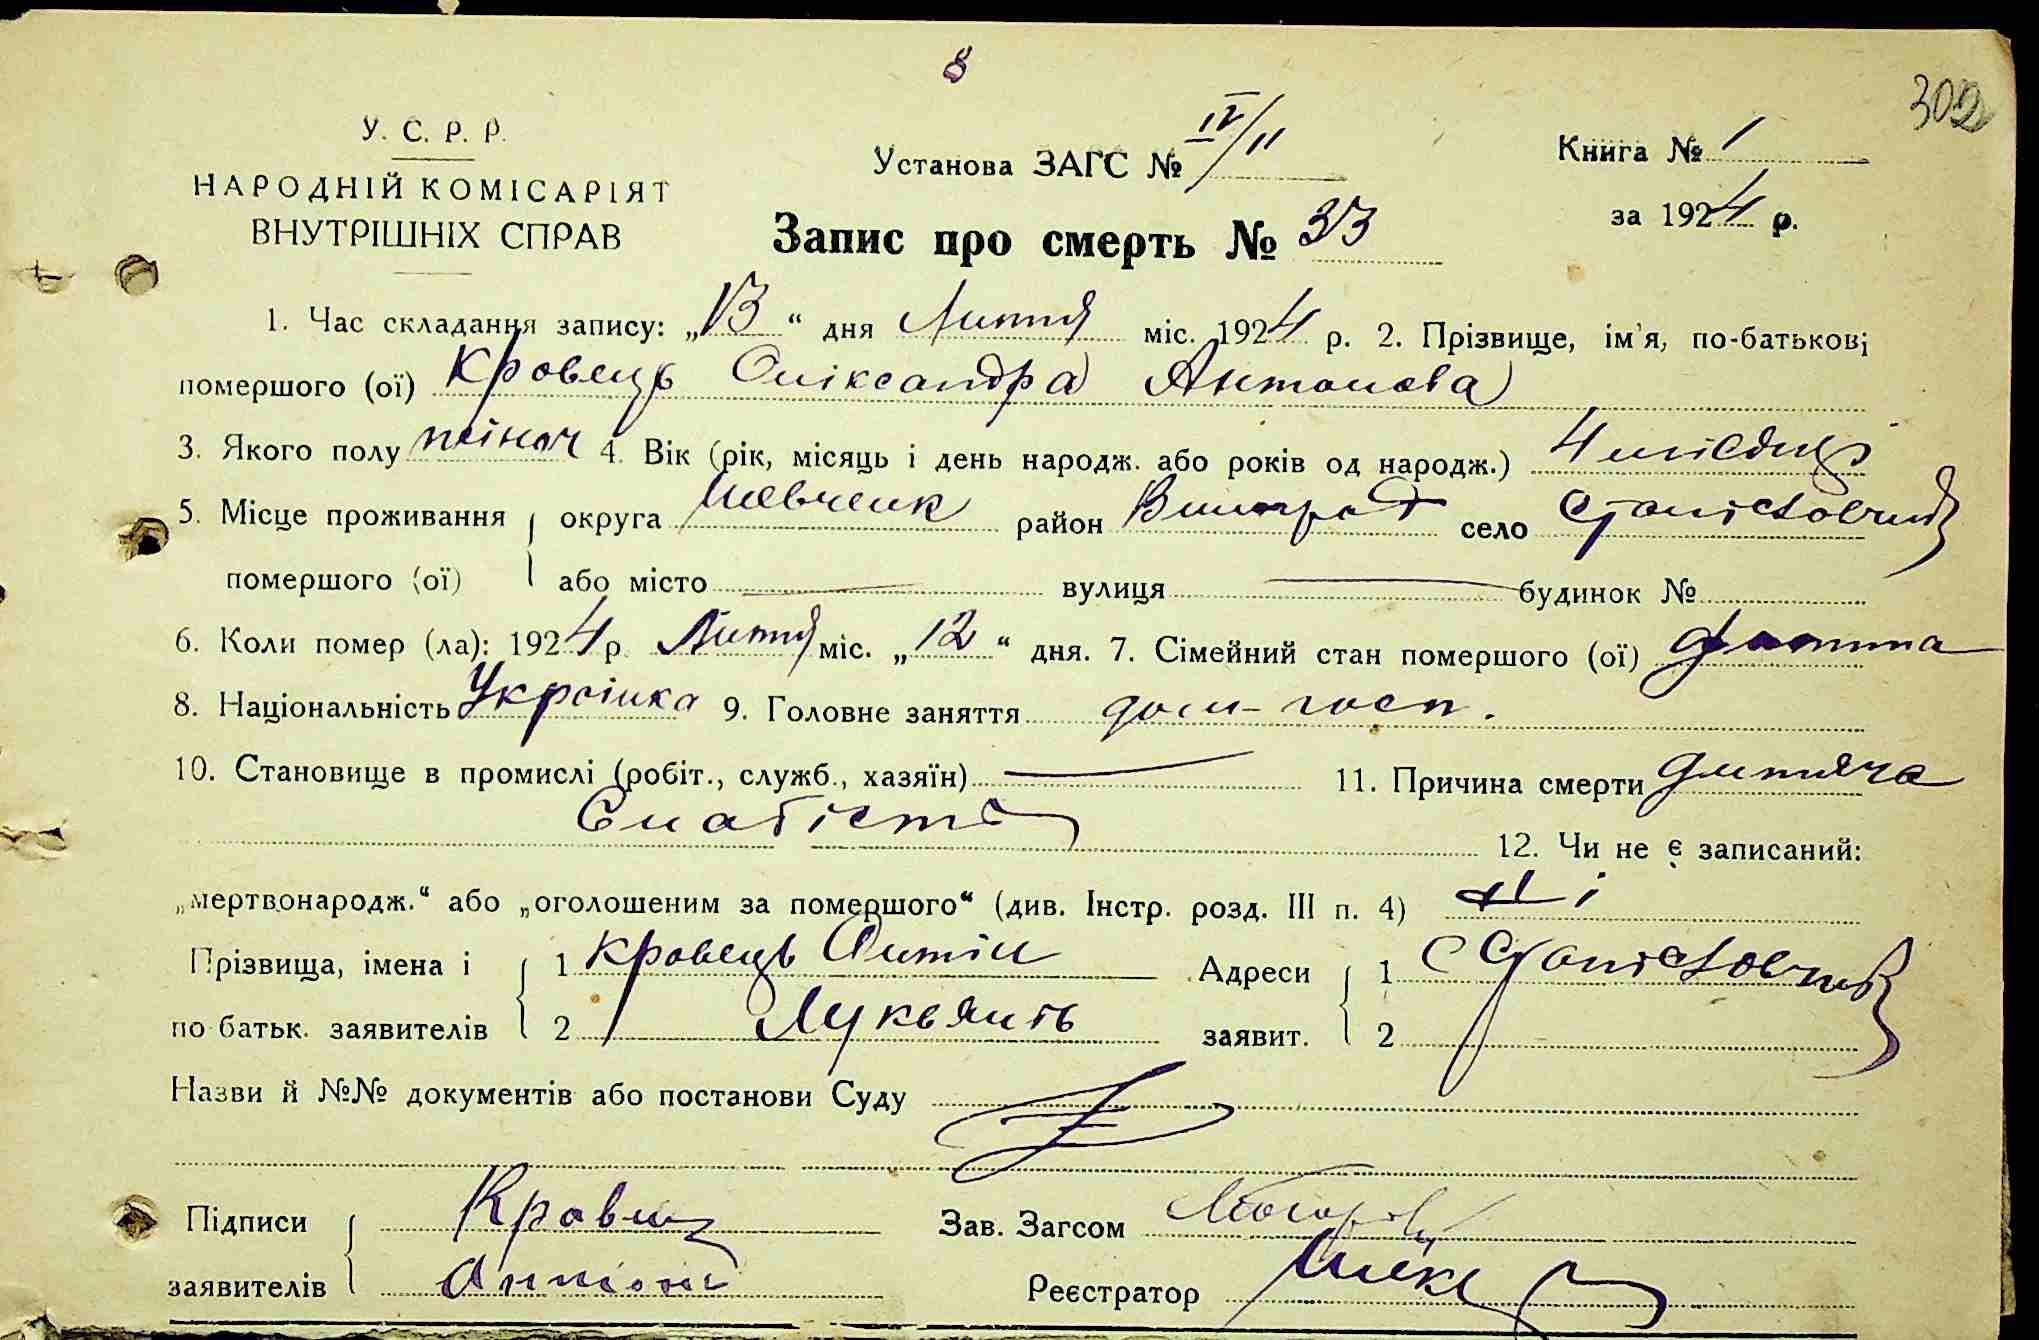 8
302
У. С. Р. Р.
НАРОДНІЙ КОМІСАРІЯТ
ВНУТРІШНІХ СПРАВ
Установа ЗАГС № IV/11
Книга № 1
за 1924 р.
Запис про смерть № 33
1. Час складання запису: „13“ дня Лютня міс. 1924 р. 2. Прізвище, ім'я, по-батькові
помершого (ої) Кровець Олександра Антонова
3. Якого полу жіноч 4. Вік (рік, місяць і день народж. або років од народж.) 4 місяці
5. Місце проживання округа Шевченк район Вишград село
помершого (ої) або місто вулиця будинок №
6. Коли помер (ла): 1924 р. Лютня міс. „12“ дня. 7. Сімейний стан помершого (ої) дитина
8. Національність Українка 9. Головне заняття дом-госп.
10. Становище в промислі (робіт., служб., хазяїн) 11. Причина смерти дитяча
Слабість
12. Чи не є записаний:
„мертвонародж.“ або „оголошеним за помершого“ (див. Інстр. розд. III п. 4) Ні
Прізвища, імена і 1 Кровець Антін Адреси 1 С
по батьк. заявителів 2 Лукьянів заявит. 2
Назви й №№ документів або постанови Суду
Підписи Кравец Зав. Загсом
заявителів Антон Реєстратор